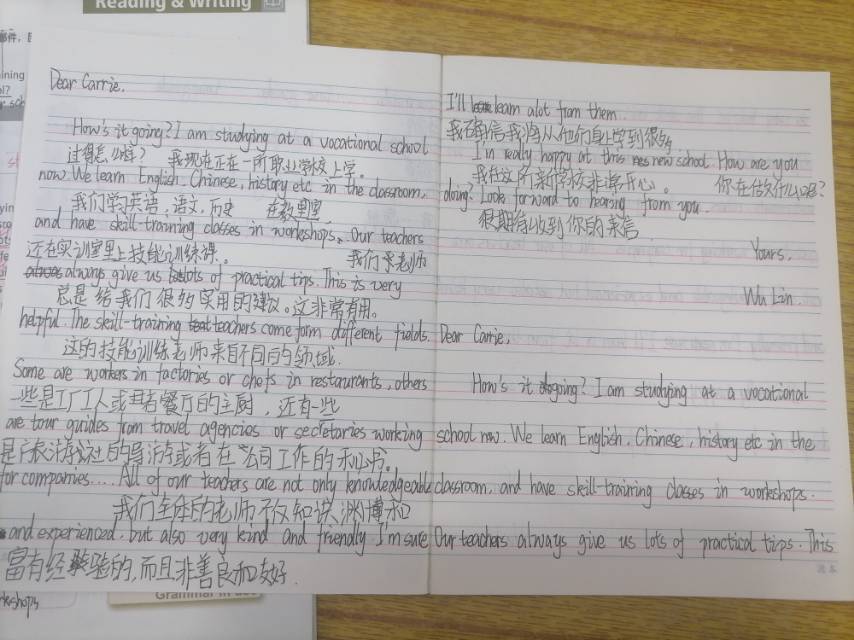 Reading & Writing
Dear Carrie,
How's it going? I am studying at a vocational school
过得怎么样? 我现在正在一所职业学校上学。
now. We learn English, Chinese, history etc in the classroom,
我们学习英语,语文,历史 在教室里
and have skill-training classes in workshops. Our teachers
还在实训室里上技能训练课。 我们老师
always give us lots of practical tips. This is very
总是给我们很多实用的建议。这非常有用。
helpful. The skill-training teachers come form different fields.
这的技能训练老师来自不同的领域.
Some are workers in factories or chefs in restaurants, others
一些是工厂工人或者餐厅的主厨,还有一些
are tour guides from travel agencies or secretaries working
是旅游社的导游或者在公司工作的秘书。
for companies.... All of our teachers are not only knowledgeable
我们全体的老师不仅知识渊博和
and experienced, but also very kind and friendly I'm sure
富有经验的,而且非善良和友好.
I'll learn alot from them.
我确信我将从他们身上学到很多
I'm really happy at this new school. How are you
我在这所新学校非常开心。 你在做什么呢?
doing? Look forward to hearing from you.
很期待收到你的来信
Yours,
Wu Lin
Dear Carrie,
How's it going? I am studying at a vocational
school now. We learn English, Chinese, history etc in the
classroom, and have skill-training classes in workshops.
Our teachers always give us lots of practical tips. This
Grammar in use